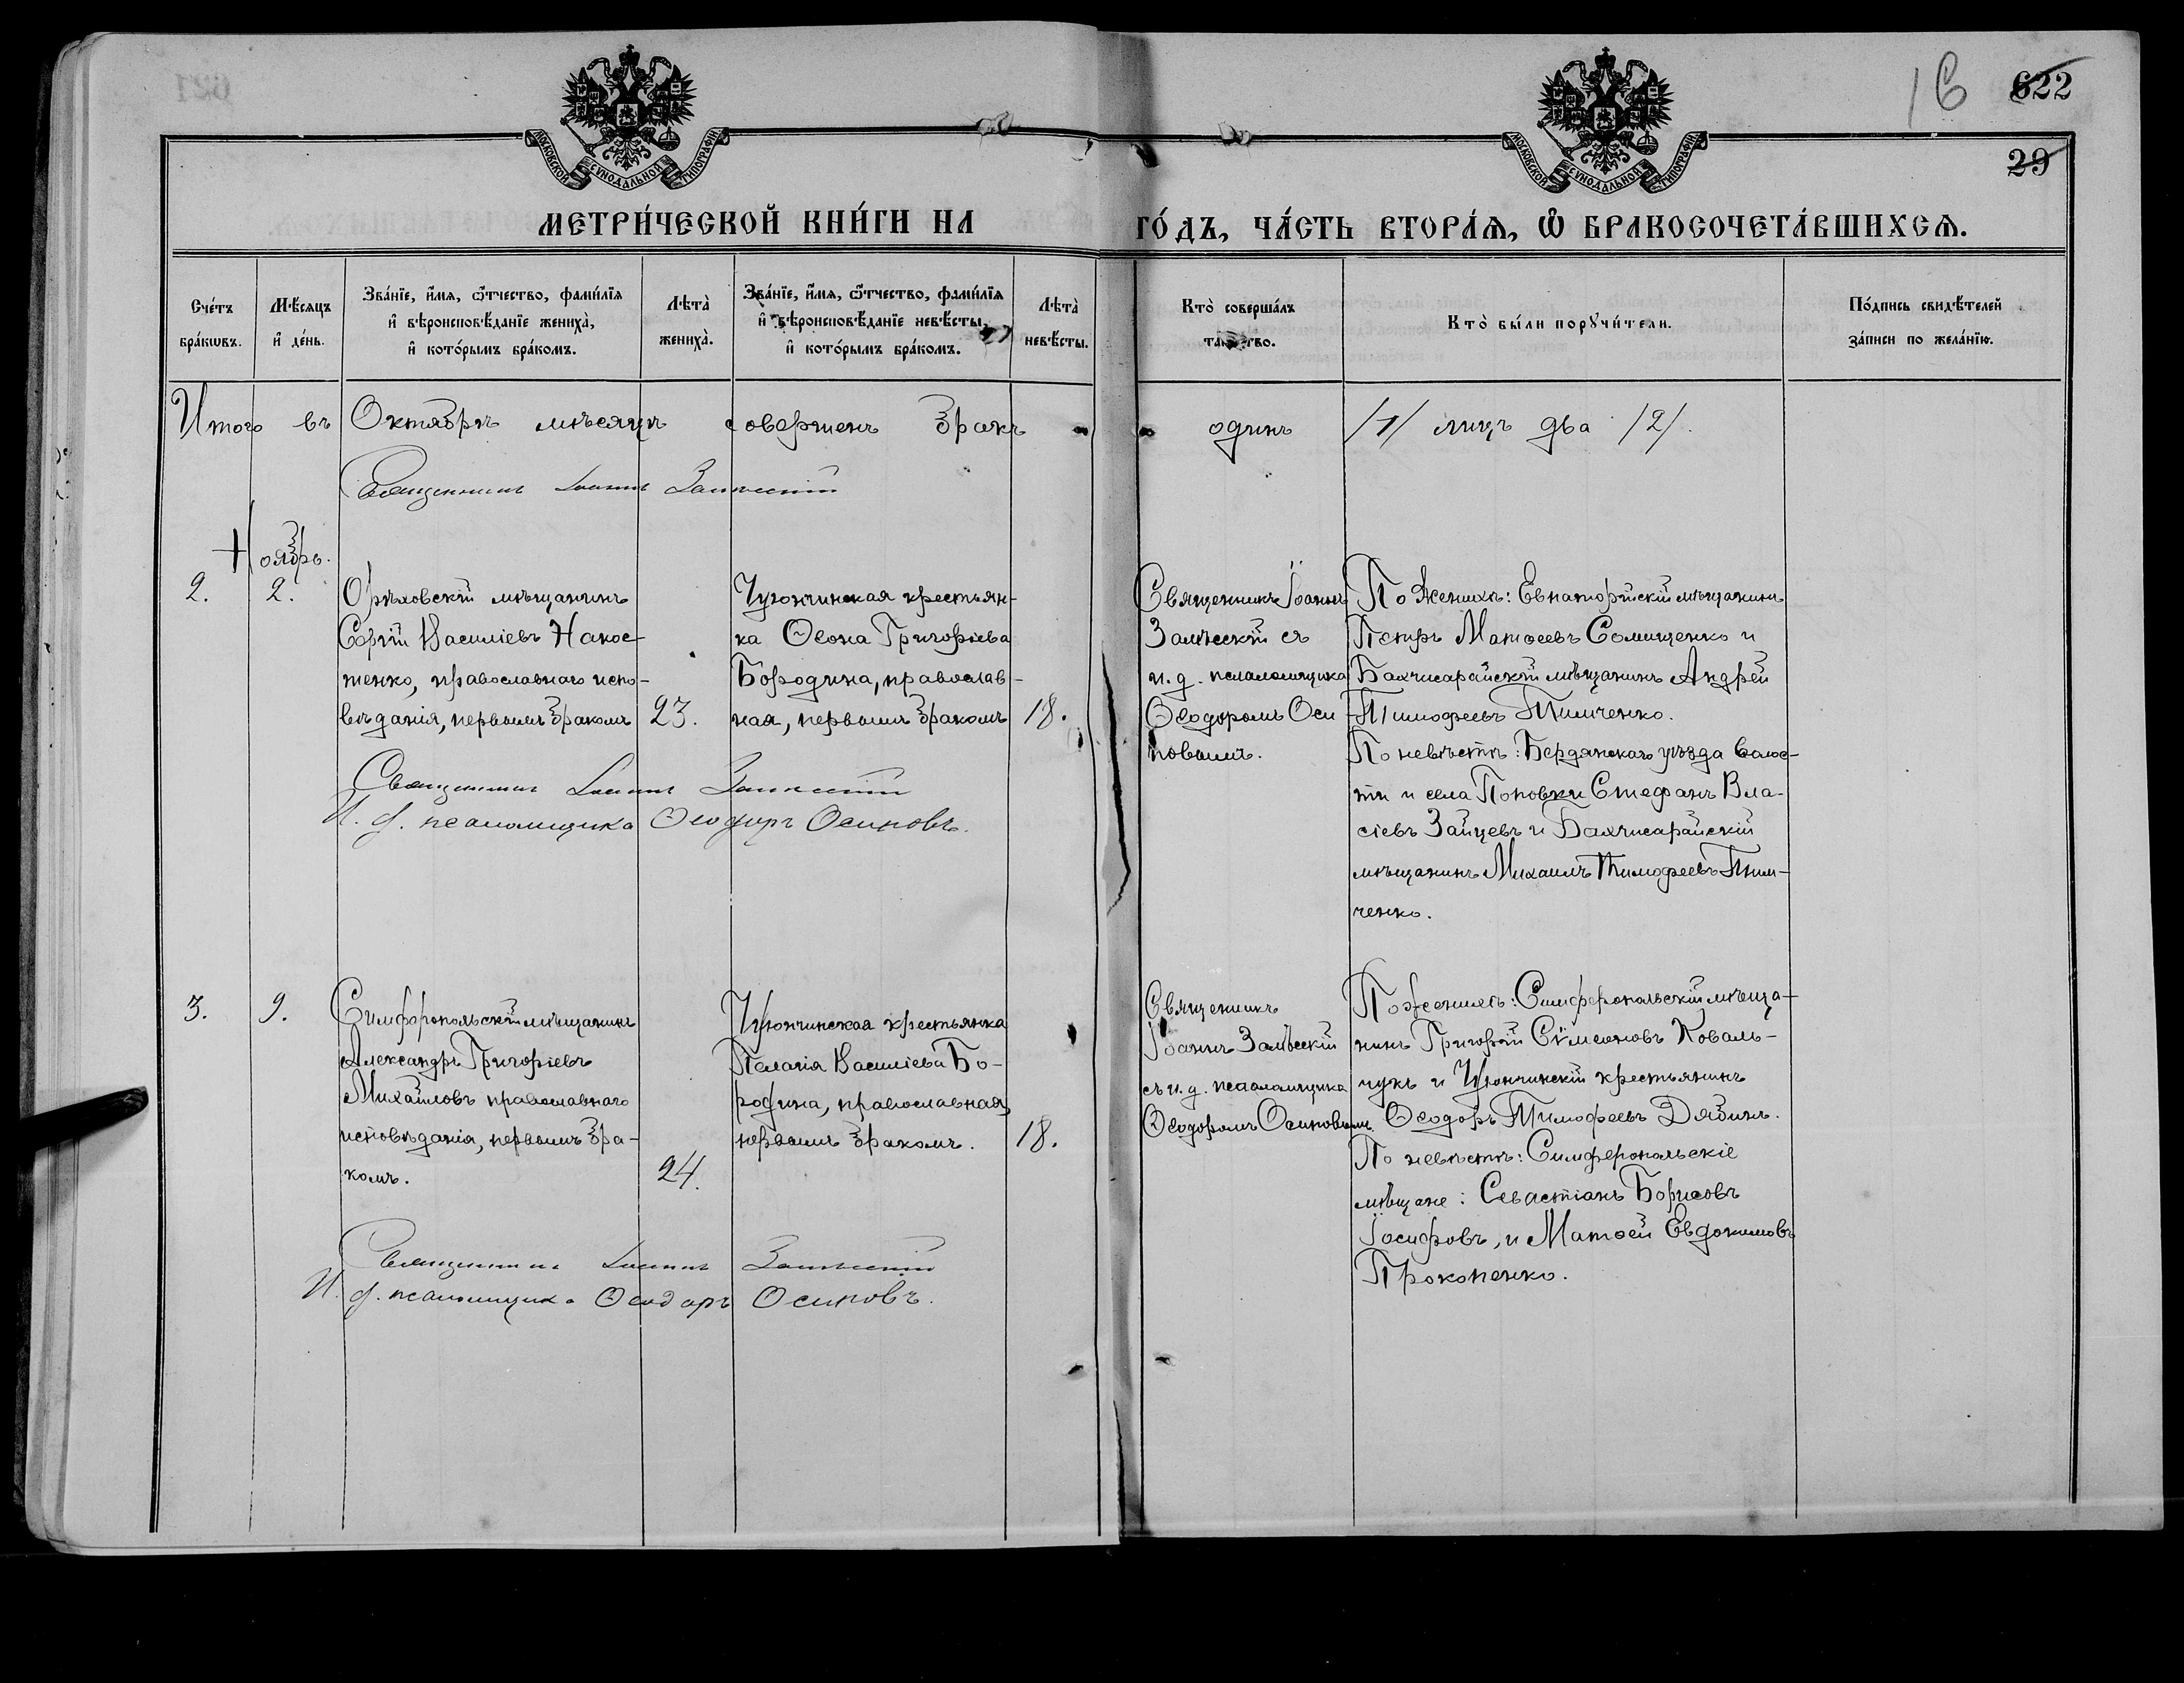 16 622
29
МОСКОВСКОЙ СѴНОДАЛЬНОЙ ТИПОГРАФІИ
МОСКОВСКОЙ СѴНОДАЛЬНОЙ ТИПОГРАФІИ
МЕТРИ́ЧЕСКОЙ КНИ́ГИ НА ГО́ДЪ, ЧА́СТЬ ВТОРА́Ѧ, Ѽ БРАКОСОЧЕТА́ВШИХСѦ.
Сче́тъ бра́кѡвъ.
Мѣ́сяцъ и҆ де́нь.
Зва́нїе, и҆́мѧ, ѻ҆́тчество, фами́лїѧ
и҆ вѣроисповѣ́данїе жениха̀,
и҆ кото́рымъ бра́комъ.
Лѣта̀ жениха̀.
Зва́нїе, и҆́мѧ, ѻ҆́тчество, фами́лїѧ
и҆ вѣроисповѣ́данїе невѣ́сты,
и҆ кото́рымъ бра́комъ.
Лѣта̀ невѣ́сты.
Кто̀ соверша́лъ
та тво.
Кто̀ бы́ли порꙋчи́тели.
По́дпись свидѣ́телей
за́писи по жела́нїю.
Итого въ Октябрѣ мѣсяцѣ совершенъ бракъ одинъ /1/ лицъ два /2/.
Священникъ Іоаннъ Залѣсскій
Ноябрь.
2.
2.
Орѣховскій мѣщанинъ
Сергій Василіевъ Накос-
тенко, православнаго испо-
вѣданія, первымъ бракомъ
23.
Чуюнчинская крестьян-
ка Ѳеона Григоріева
Бородина, православ-
ная, первымъ бракомъ
18.
Священникъ Іоаннъ
Залѣсскій съ
и. д. псаломщика
Ѳеодоромъ Оси-
повымъ.
По женихѣ: Евпаторійскій мѣщанинъ
Петръ Матѳеевъ Сомищенко и
Бахчисарайскій мѣщанинъ Андрей
Тимофеевъ Тимченко.
По невѣстѣ: Бердянскаго уѣзда волос-
ти и села Поповки Стефанъ Вла-
сіевъ Зайцевъ и Бахчисарайскій
мѣщанинъ Михаилъ Тимофеевъ Тим-
ченко.
Священникъ Іоаннъ Залѣсскій
И. д. псаломщика Ѳеодоръ Осиповъ.
3.
9.
Симферопольскій мѣщанинъ
Александръ Григоріевъ
Михайловъ православнаго
исповѣданія, первымъ бра-
комъ.
24.
Чуюнчинская крестьянка
Пелагія Василіева Бо-
родина, православная,
первымъ бракомъ.
18.
Священникъ
Іоаннъ Залѣсскій
съ и. д. псаломщика
Ѳеодоромъ Осиповымъ
По женихѣ: Симферопольскій мѣща-
нинъ Григорій Сѵмеоновъ Коваль-
чукъ и Чуюнчинскій крестьянинъ
Ѳеодоръ Тимофеевъ Дябинъ.
По невѣстѣ: Симферопольскіе
мѣщане: Севастіанъ Борисовъ
Іосифовъ, и Матѳей Евдокимовъ
Прокопенко.
Священникъ Іоаннъ Залѣсскій
И. д. псаломщика Ѳеодоръ Осиповъ.